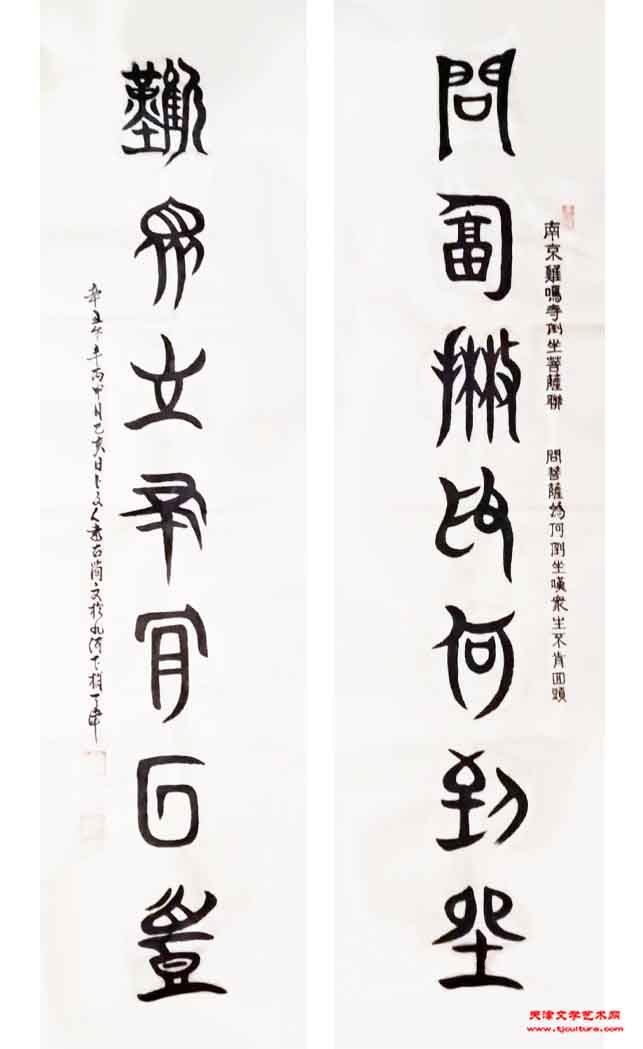 南京雞鳴寺倒坐菩薩聯 問菩薩為何倒坐嘆眾生不肯回頭
問菩薩為何倒坐
嘆眾生不肯回頭
辛丑年丙申月己亥日卜文人書古簡文於九河下梢
天津文学艺术网
www.tjculture.com